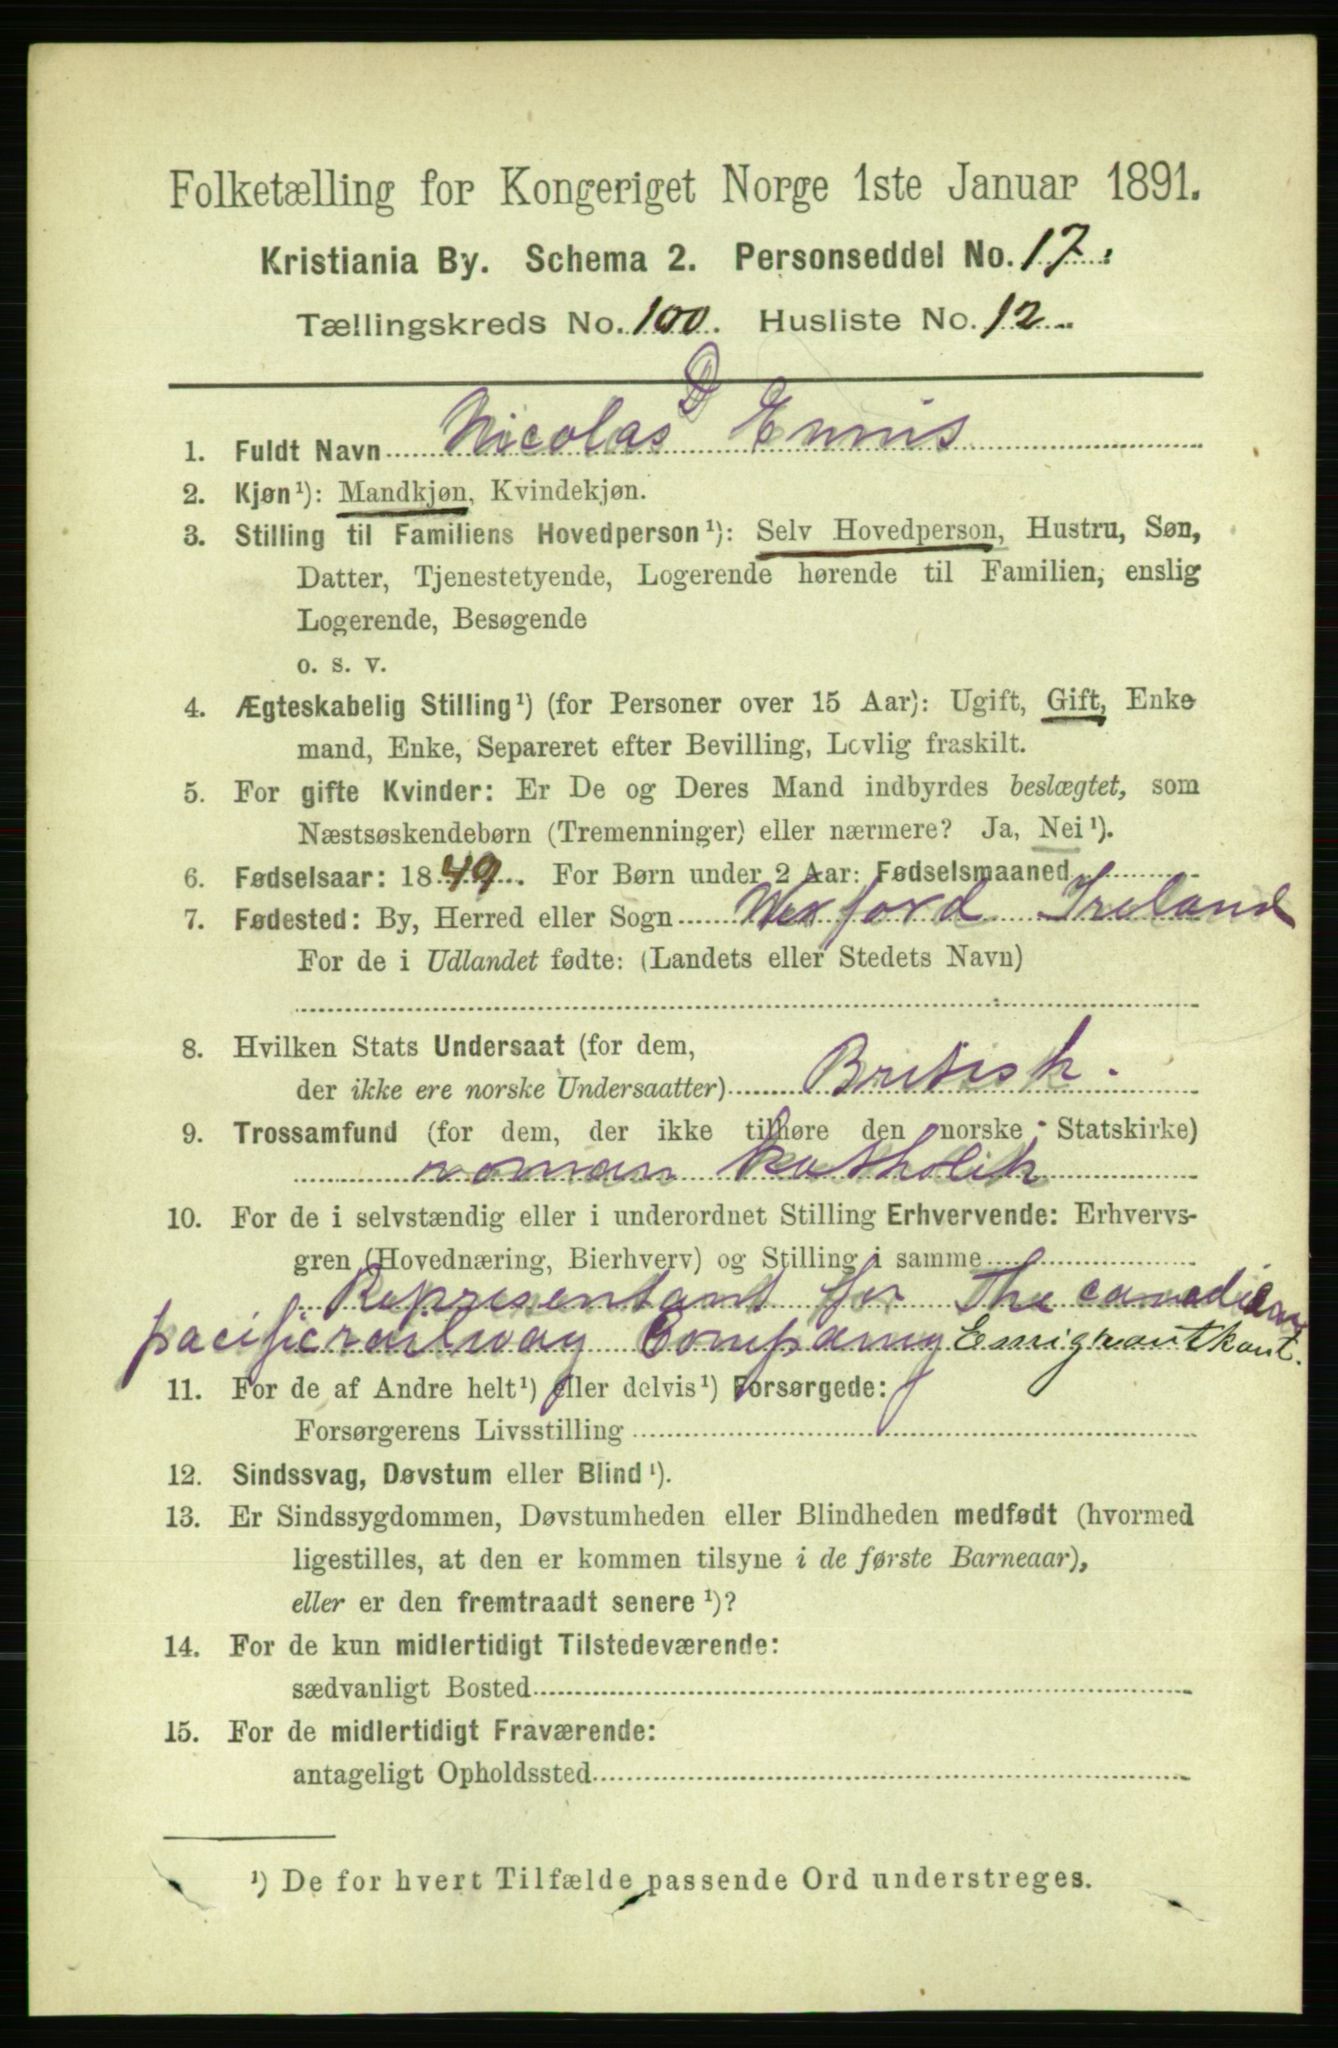 Folketælling for Kongeriget Norge 1ste Januar 1891.
Kristiania By. Schema 2. Personseddel No. 17.
Tællingskreds No. 100. Husliste No. 12
1. Fuldt Navn Nicolas D Ennis
2. Kjøn¹): Mandkjøn, Kvindekjøn.
3. Stilling til Familiens Hovedperson¹): Selv Hovedperson, Hustru, Søn,
Datter, Tjenestetyende, Logerende hørende til Familien, enslig
Logerende, Besøgende
o. s. v.
4. Ægteskabelig Stilling¹) (for Personer over 15 Aar): Ugift, Gift, Enke-
mand, Enke, Separeret efter Bevilling, Lovlig fraskilt.
5. For gifte Kvinder: Er De og Deres Mand indbyrdes beslægtet, som
Næstsøskendebørn (Tremenninger) eller nærmere? Ja, Nei¹).
6. Fødselsaar: 1849. For Børn under 2 Aar: Fødselsmaaned
7. Fødested: By, Herred eller Sogn Wexford Ireland
For de i Udlandet fødte: (Landets eller Stedets Navn)
8. Hvilken Stats Undersaat (for dem,
der ikke ere norske Undersaatter) British.
9. Trossamfund (for dem, der ikke tilhøre den norske Statskirke)
roman katholik
10. For de i selvstændig eller i underordnet Stilling Erhvervende: Erhvervs-
gren (Hovednæring, Bierhverv) og Stilling i samme
Representant for The canadian
pacific railway Company Emigrantkont.
11. For de af Andre helt¹) eller delvis¹) Forsørgede:
Forsørgerens Livsstilling
12. Sindssvag, Døvstum eller Blind¹).
13. Er Sindssygdommen, Døvstumheden eller Blindheden medfødt (hvormed
ligestilles, at den er kommen tilsyne i de første Barneaar),
eller er den fremtraadt senere¹)?
14. For de kun midlertidigt Tilstedeværende:
sædvanligt Bosted
15. For de midlertidigt Fraværende:
antageligt Opholdssted
¹) De for hvert Tilfælde passende Ord understreges.